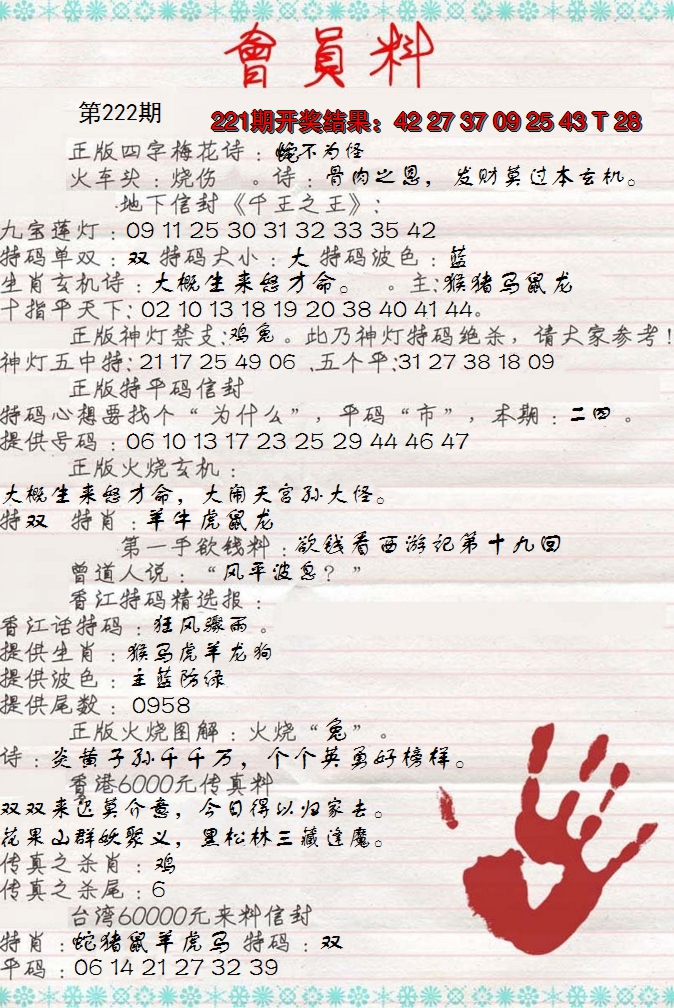 會員料
第222期
221期开奖结果：42 27 37 09 25 43 T 28
正版四字梅花诗：蛇不为怪
火车头：烧伤 。诗：骨肉之恩，发财莫过本玄机。
地下信封《千王之王》：
九宝莲灯：09 11 25 30 31 32 33 35 42
特码单双：双 特码大小：大 特码波色：蓝
生肖玄机诗：大概生来怒才命。 。主：猴猪马鼠龙
十指平天下：02 10 13 18 19 20 38 40 41 44。
正版神灯禁支：鸡兔。此乃神灯特码绝杀，请大家参考！
神灯五中特：21 17 25 49 06 、五个平：31 27 38 18 09
正版特平码信封
特码心想要找个“为什么”，平码“市”，本期：二四。
提供号码：06 10 13 17 23 25 29 44 46 47
正版火烧玄机：
大概生来怒才命，大闹天宫孙大怪。
特双 特肖：羊牛虎鼠龙
第一手欲钱料：欲钱看西游记第十九回
曾道人说：“风平波息？”
香江特码精选报：
香江话特码：狂风骤雨。
提供生肖：猴马虎羊龙狗
提供波色：主蓝防绿
提供尾数：0958
正版火烧图解：火烧“兔”。
诗：炎黄子孙千千万，个个英勇好榜样。
香港6000元传真料
双双来迟莫介意，今日得以归家去。
花果山群妖聚义，黑松林三藏逢魔。
传真之杀肖：鸡
传真之杀尾：6
台湾60000元来料信封
特肖：蛇猪鼠羊虎马 特码：双
平码：06 14 21 27 32 39